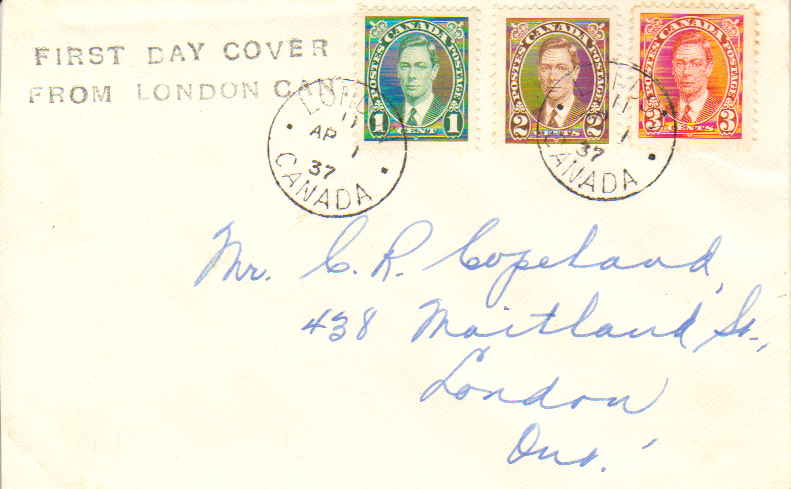 FIRST DAY COVER
FROM LONDON CAN
POSTES CANADA POSTAGE
1 CENT 1
POSTES CANADA POSTAGE
2 CENTS 2
POSTES CANADA POSTAGE
3 CENTS 3
LOND
11
AP 1
37
CANADA
11
1
37
CANADA
Mr. C. R. Copeland,
438 Maitland St.,
London
Ont.